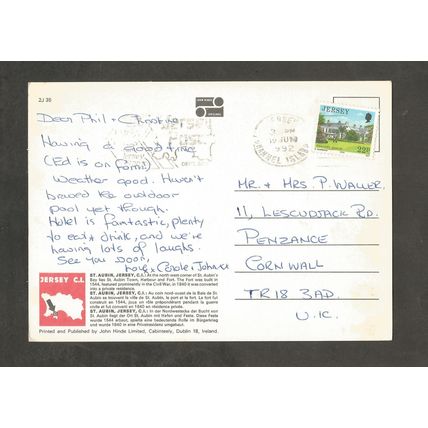 2J 36
JOHN HINDE
ORIGINAL
Dear Phil & Christine
Having a good time
(Ed is on form)
Weather good. Haven't
braved the outdoor
pool yet though.
Hotel is fantastic, plenty
to eat & drink, and we're
having lots of laughs.
See you soon,
love Carole & Johnnie
JERSEY C.I.
ST. AUBIN, JERSEY, C.I.: At the north west corner of St. Aubin's
Bay lies St. Aubin Town, Harbour and Fort. The Fort was built in
1544, featured prominently in the Civil War, in 1840 it was converted
into a private residence.
ST. AUBIN, JERSEY, C.I.: Au coin nord-ouest de la Baie de St.
Aubin se trouvent la ville de St. Aubin, le port et le fort. Le fort fut
construit en 1544, joua un rôle prépondérant pendant la guerre
civile et fut converti en 1840 en résidence privée.
ST. AUBIN, JERSEY, C.I.: In der Nordwestecke der Bucht von
St. Aubin liegt der Ort St. Aubin mit Hafen und Feste. Diese Feste
wurde 1544 erbaut, spielte eine bedeutende Rolle im Bürgerkrieg
und wurde 1840 in eine Privatresidenz umgebaut.
Printed and Published by John Hinde Limited, Cabinteely, Dublin 18, Ireland.
JERSEY
PM
JUN
1992
CHANNEL ISLANDS
JERSEY
22p
Mr. & Mrs P. Waller
11, Lescudjack Rd.
Penzance
Cornwall
TR18 3AD.
U.K.